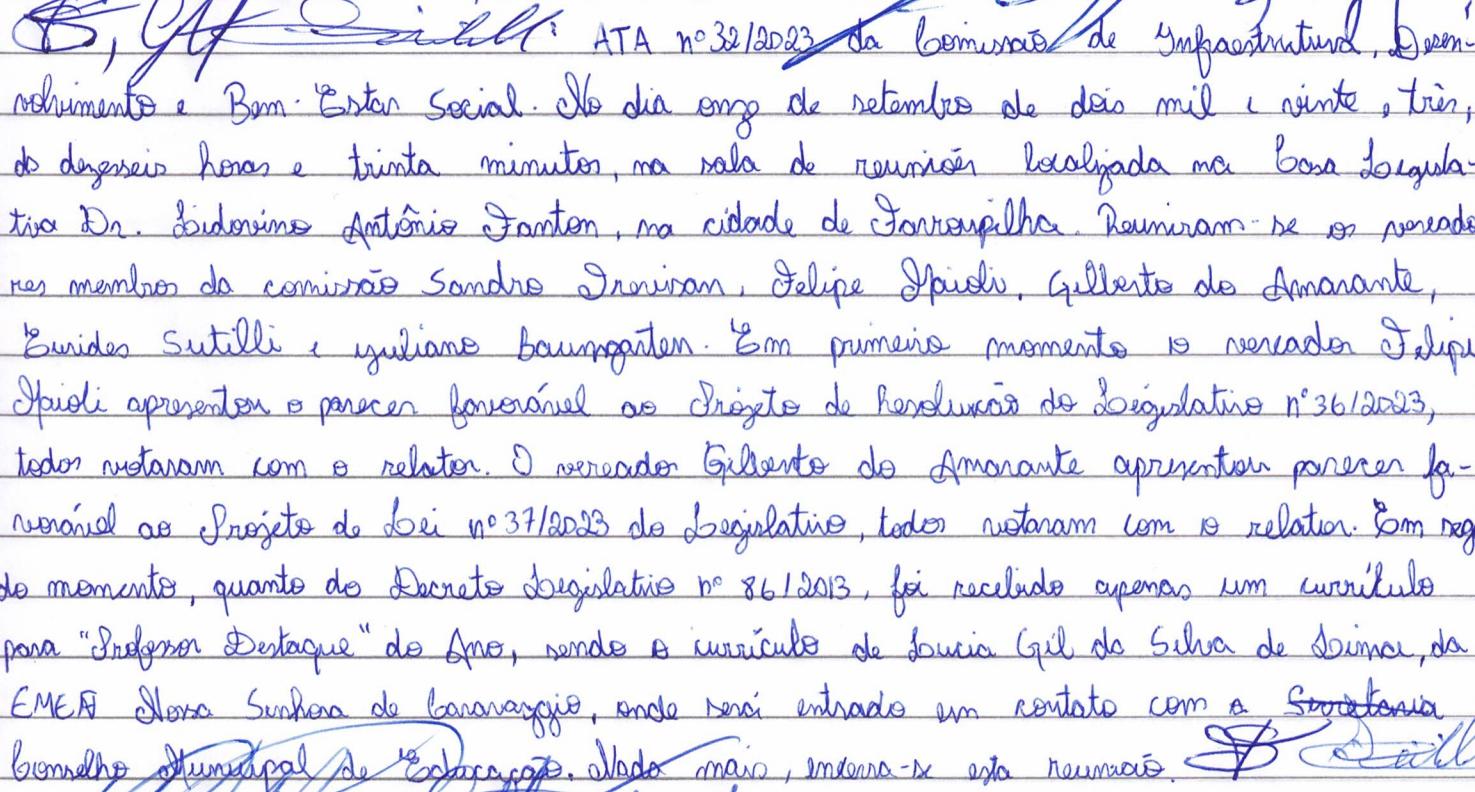 ATA nº 32/2023 da Comissão de Infraestrutura, Desen-
volvimento e Bem-Estar Social. No dia onze de setembro de dois mil e vinte e três,
às dezesseis horas e trinta minutos, na sala de reuniões localizada na Casa Legisla-
tiva Dr. Lidovino Antônio Fanton, na cidade de Farroupilha. Reuniram-se os vereado
res membros da comissão Sandro Trevisan, Felipe Maioli, Gilberto do Amarante,
Eurides Sutilli e Juliano Baumgarten. Em primeiro momento o vereador Felipe
Maioli apresentou o parecer favorável ao Projeto de Resolução do Legislativo nº 36/2023,
todos votaram com o relator. O vereador Gilberto do Amarante apresentou parecer fa-
vorável ao Projeto de Lei nº 37/2023 do Legislativo, todos votaram com o relator. Em seg
do momento, quanto do Decreto Legislativo nº 86/2013, foi recebido apenas um currículo
para "Professor Destaque" do Ano, sendo o currículo de Lucia Gil da Silva de Lima, da
EMEF Nossa Senhora de Caravaggio, onde será entrado em contato com o Secretaria
Conselho Municipal de Educação. Nada mais, encerra-se esta reunião.